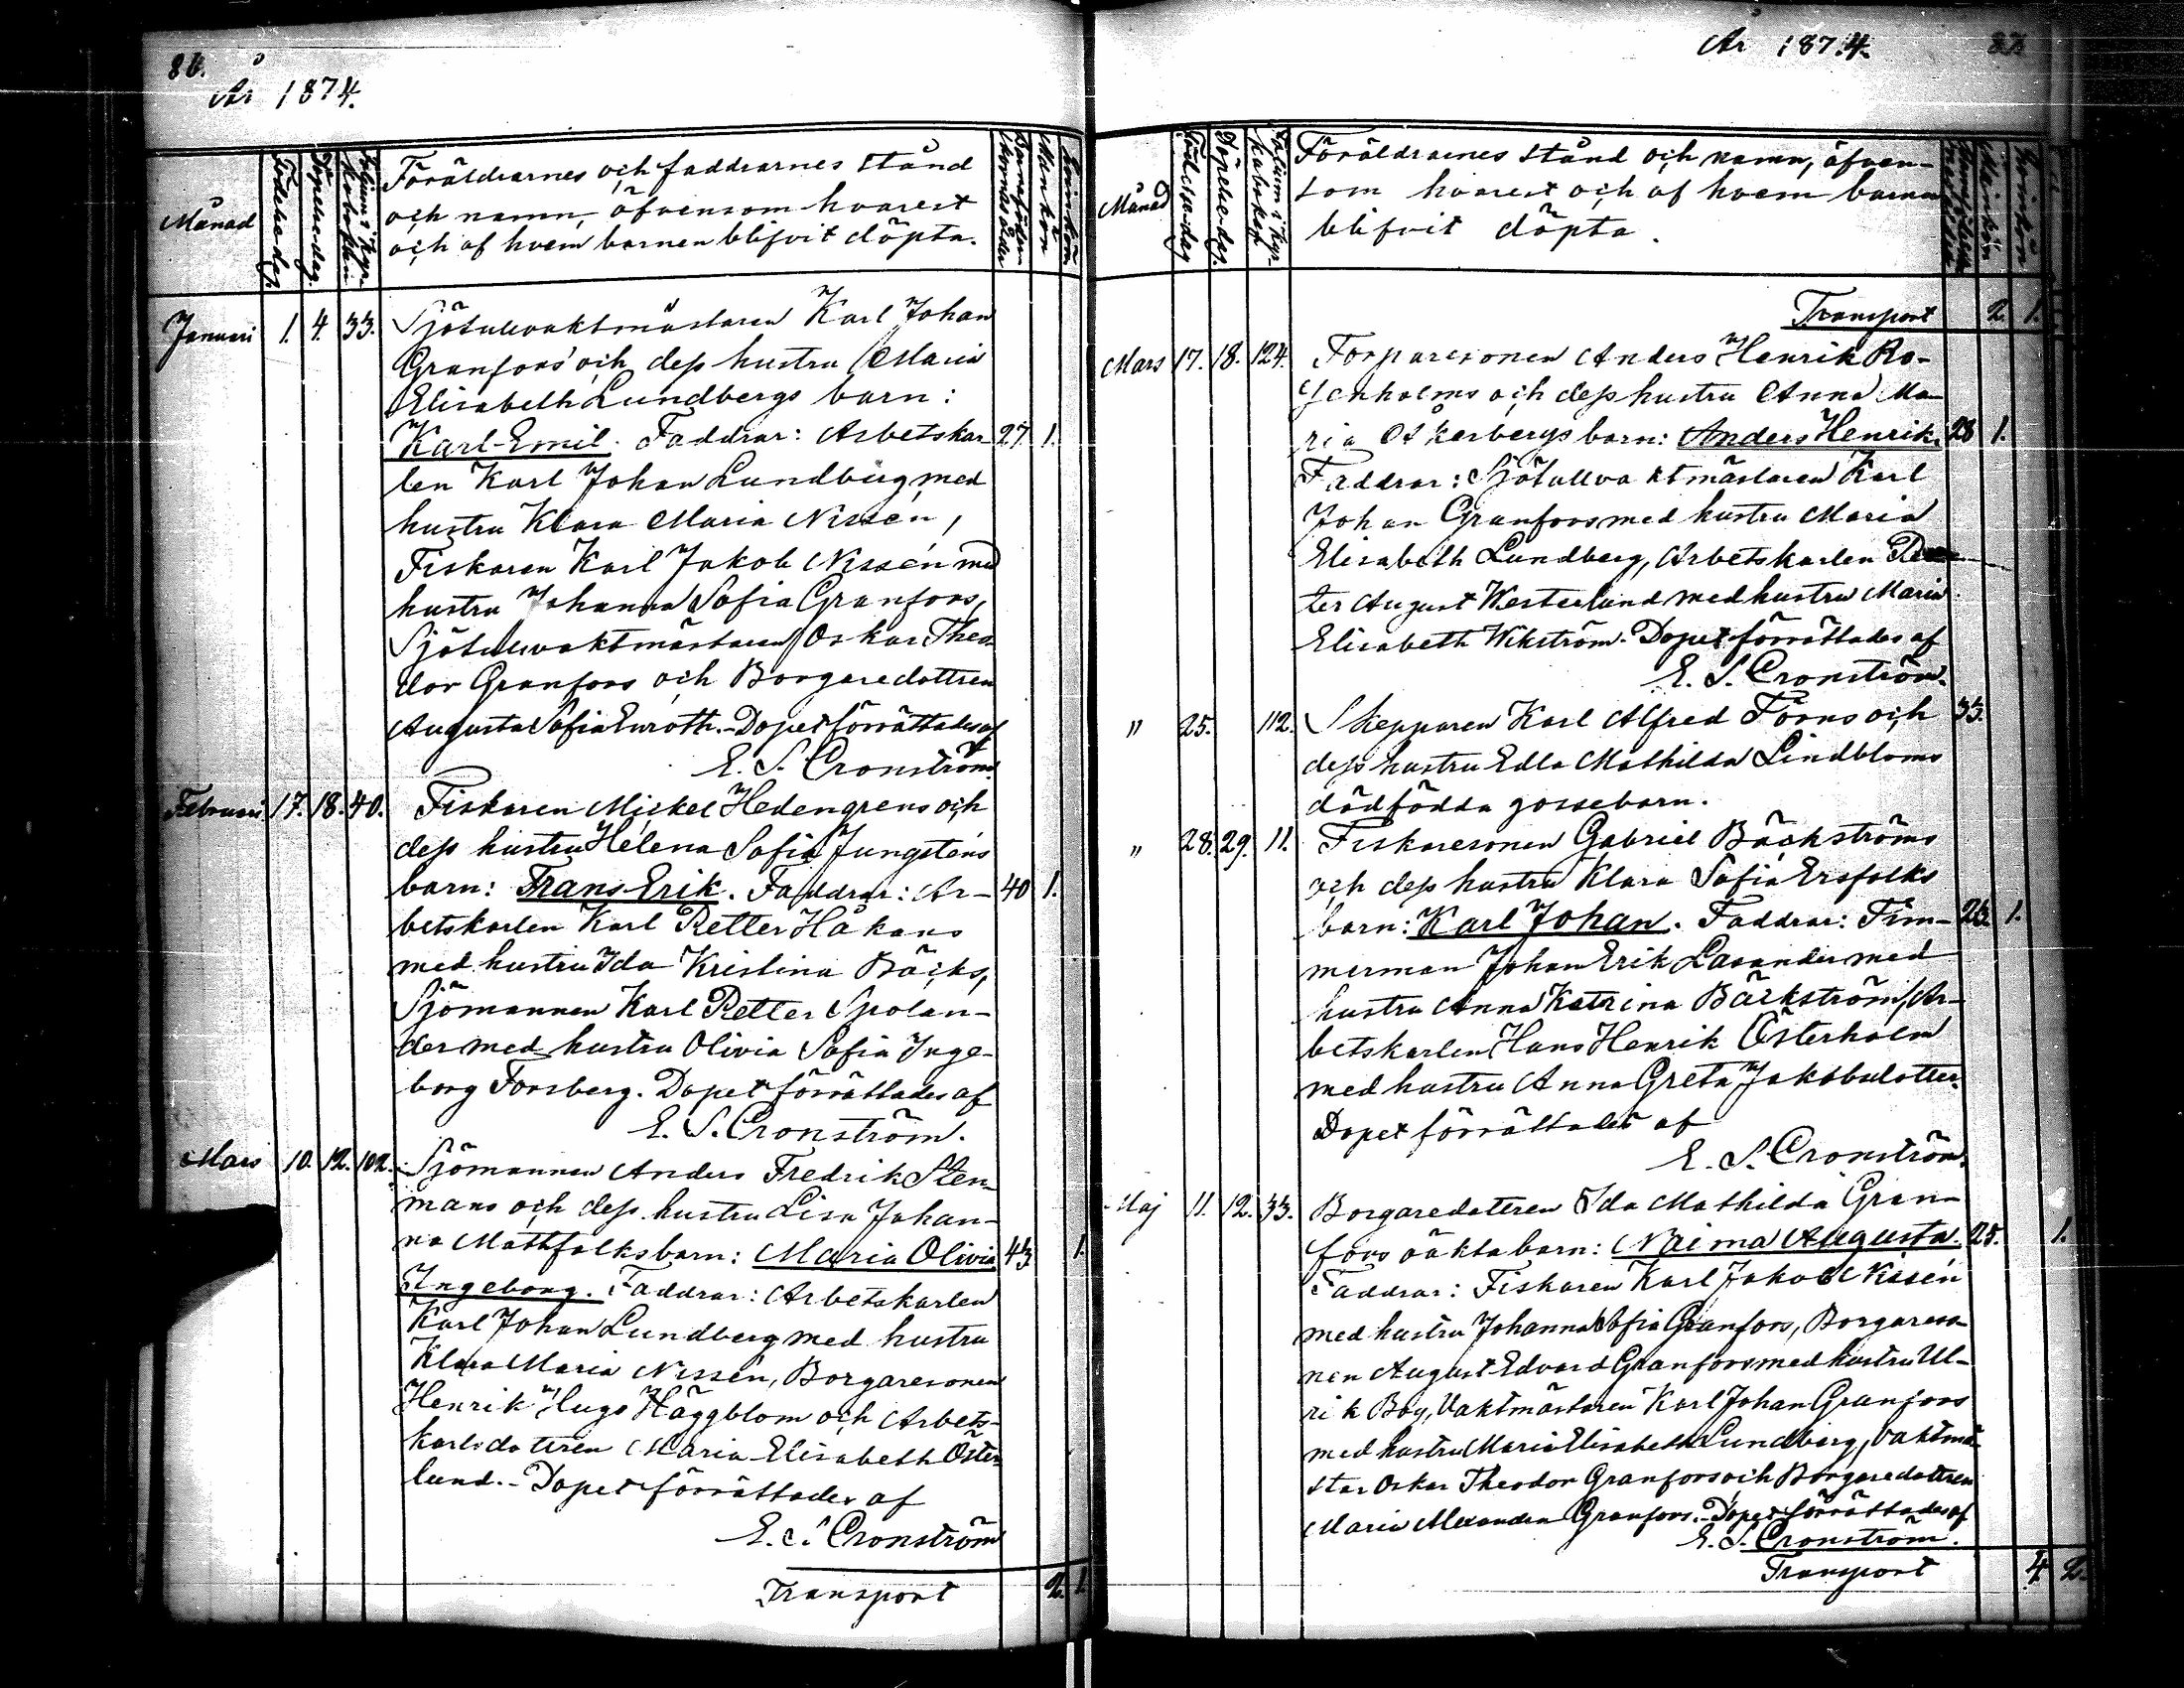 86.
År 1874.
Månad
Födelsedag
Döpelsedag.
Folium i Kyrkoboken
Föräldrarnes och faddrarnes stånd
och namn, äfvensom hvarest
och af hvem barnen blifvit döpta.
Barnaföderskornas ålder
Mankön
Qvinkön
Januari 1. 4. 33. Sjötullvaktmästaren Karl Johan
Granfors' och dess hustru Maria
Elisabeth Lundbergs barn:
Karl-Emil. Faddrar: Arbetskar- 27 1.
len Karl Johan Lundberg med
hustru Klara Maria Nissén,
Fiskaren Karl Jakob Nissén med
hustru Johanna Sofia Granfors,
Sjötullvaktmästaren Oskar Theo-
dor Granfors och Borgaredottren
Augusta Sofia Euroth. - Dopet förrättades af
E. S. Cronström.
Februari 17. 18. 40. Fiskaren Mickel Hedengrens och
dess hustru Helena Sofia Ljungsténs
barn: Frans Erik. Faddrar: Ar- 40 1.
betskarlen Karl Petter Håkans
med hustru Ida Kristina Bäcks,
Sjömannen Karl Petter Spolan-
der med hustru Olivia Sofia Inge-
borg Forsberg. Dopet förrättades af
E. S. Cronström.
Mars 10. 12. 102. Sjömannen Anders Fredrik Sten-
mans och dess hustru Lisa Johan-
na Mathfolks barn: Maria Olivia 43 1.
Ingeborg. Faddrar: Arbetskarlen
Karl Johan Lundberg med hustru
Klara Maria Nissén, Borgaresonen
Henrik Hugo Häggblom och Arbets-
karlsdottren Maria Elisabeth Öster-
lund. - Dopet förrättades af
E. S. Cronström
Transport 2. 1.
År 1874.
Månad
Födelsedag
Döpelsedag.
Folium i Kyrkobok.
Föräldrarnes stånd och namn, äfven-
som hvarest och af hvem barnen
blifvit döpta.
Mankön
Qvinkön
Transport 2. 1.
Mars 17. 18. 124. Torparesonen Anders Henrik Ro-
senholms och dess hustru Anna Ma-
ria Åkerbergs barn: Anders Henrik. 28 1.
Faddrar: Sjötullvaktmästaren Karl
Johan Granfors med hustru Maria
Elisabeth Lundberg, Arbetskarlen Pet-
ter August Westerlund med hustru Maria
Elisabeth Wikström. Dopet förrättades af
E. S. Cronström.
" 25. 112. Skepparen Karl Alfred Förns och 33.
dess hustru Edla Mathilda Lindbloms
dödfödda gossebarn.
" 28. 29. 11. Fiskaresonen Gabriel Bäckströms
och dess hustru Klara Sofia Ersfolks
barn: Karl Johan. Faddrar: Tim- 1.
merman Johan Erik Lavander med
hustru Anna Katrina Bäckström, Ar-
betskarlen Hans Henrik Österholm
med hustru Anna Greta Jakobsdotter.
Dopet förrättades af
E. S. Cronström.
Maj 11. 12. 33. Borgaredottren Ida Mathilda Gran-
fors oäkta barn: Naima Augusta. 25. 1.
Faddrar: Fiskaren Karl Jakob Nissén
med hustru Johanna Sofia Granfors, Borgareso-
nen August Edvard Granfors med hustru Ul-
rik Boy, Vaktmästaren Karl Johan Granfors
med hustru Maria Elisabeth Lundberg, Vaktmä-
star Oskar Theodor Granfors och Borgaredottren
Maria Alexandra Granfors. - Dopet förrättades af
E. S. Cronström.
Transport 4 2.